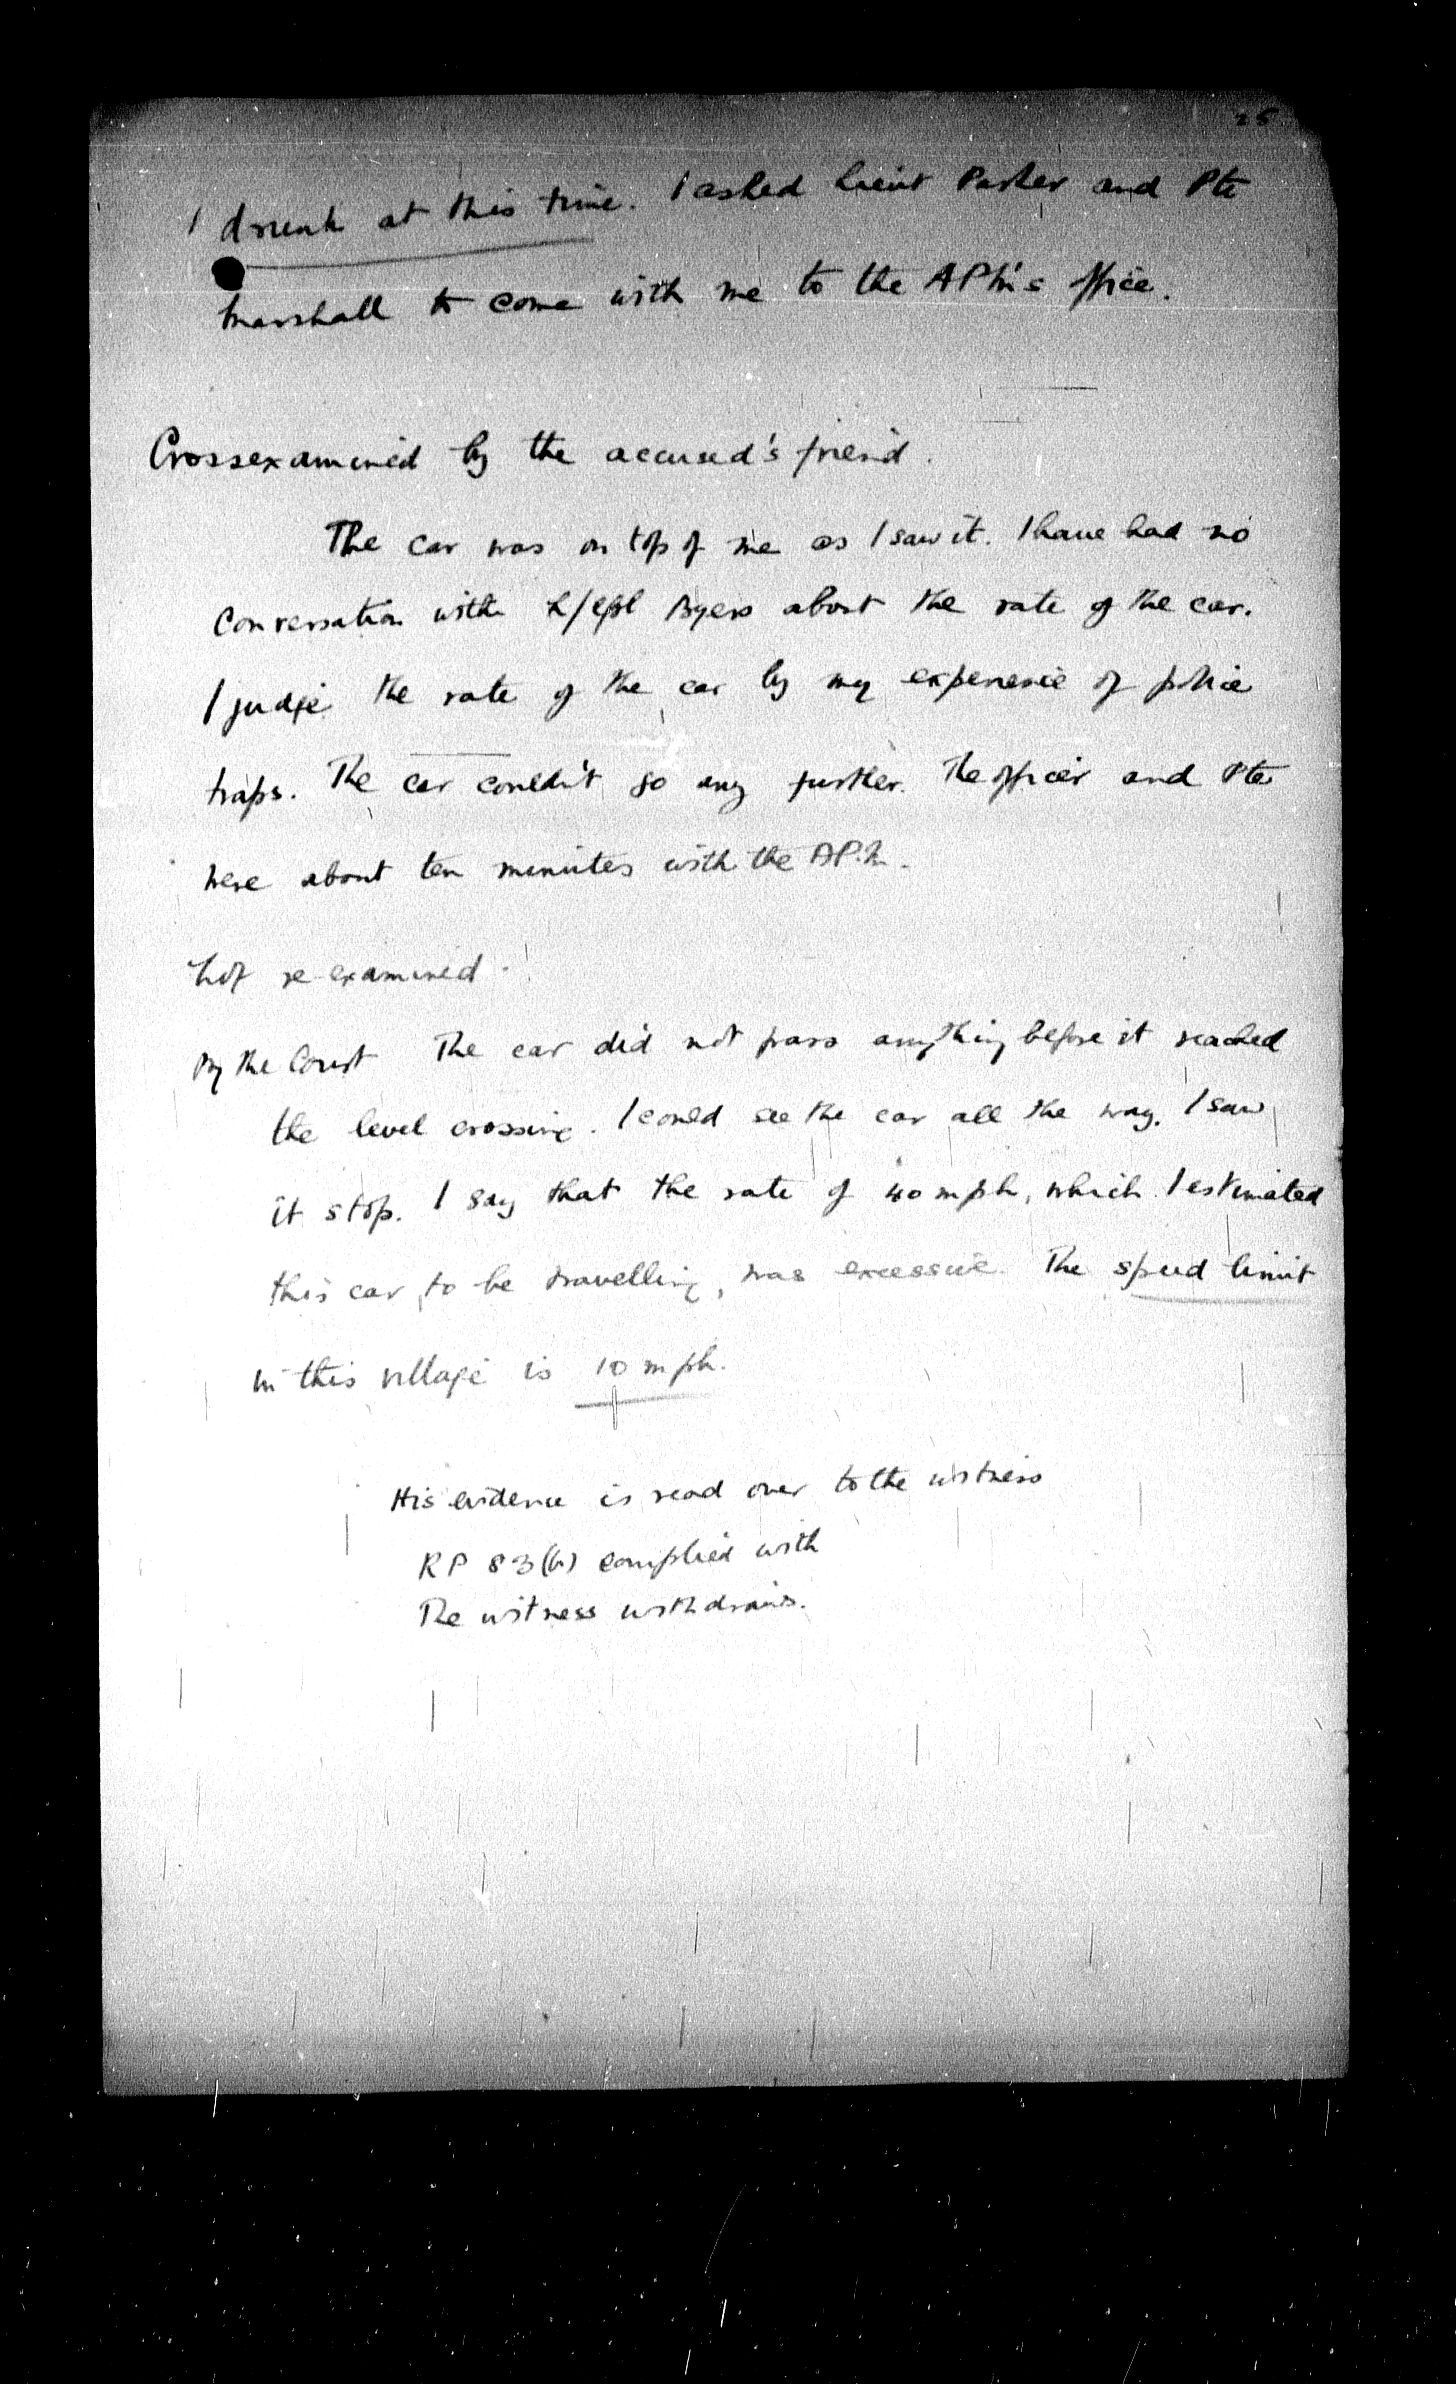 25
drunk at this time. I asked Lieut Parker and Pte
Marshall to come with me to the APM's office.
Crossexamined by the accused's friend.
The car was on top of me as I saw it. I have had no
conversation with L/Cpl Byers about the rate of the car.
I judge the rate of the car by my experience of police
traps. The car couldn't go any further. The officer and Pte
were about ten minutes with the APM.
Not re-examined.
By the Court The car did not pass anything before it reached
the level crossing. I could see the car all the way. I saw
it stop. I say that the rate of 40 mph, which I estimated
this car to be travelling, was excessive. The speed limit
in this village is 10 mph.
His evidence is read over to the witness
RP 83(b) complied with
The witness withdraws.